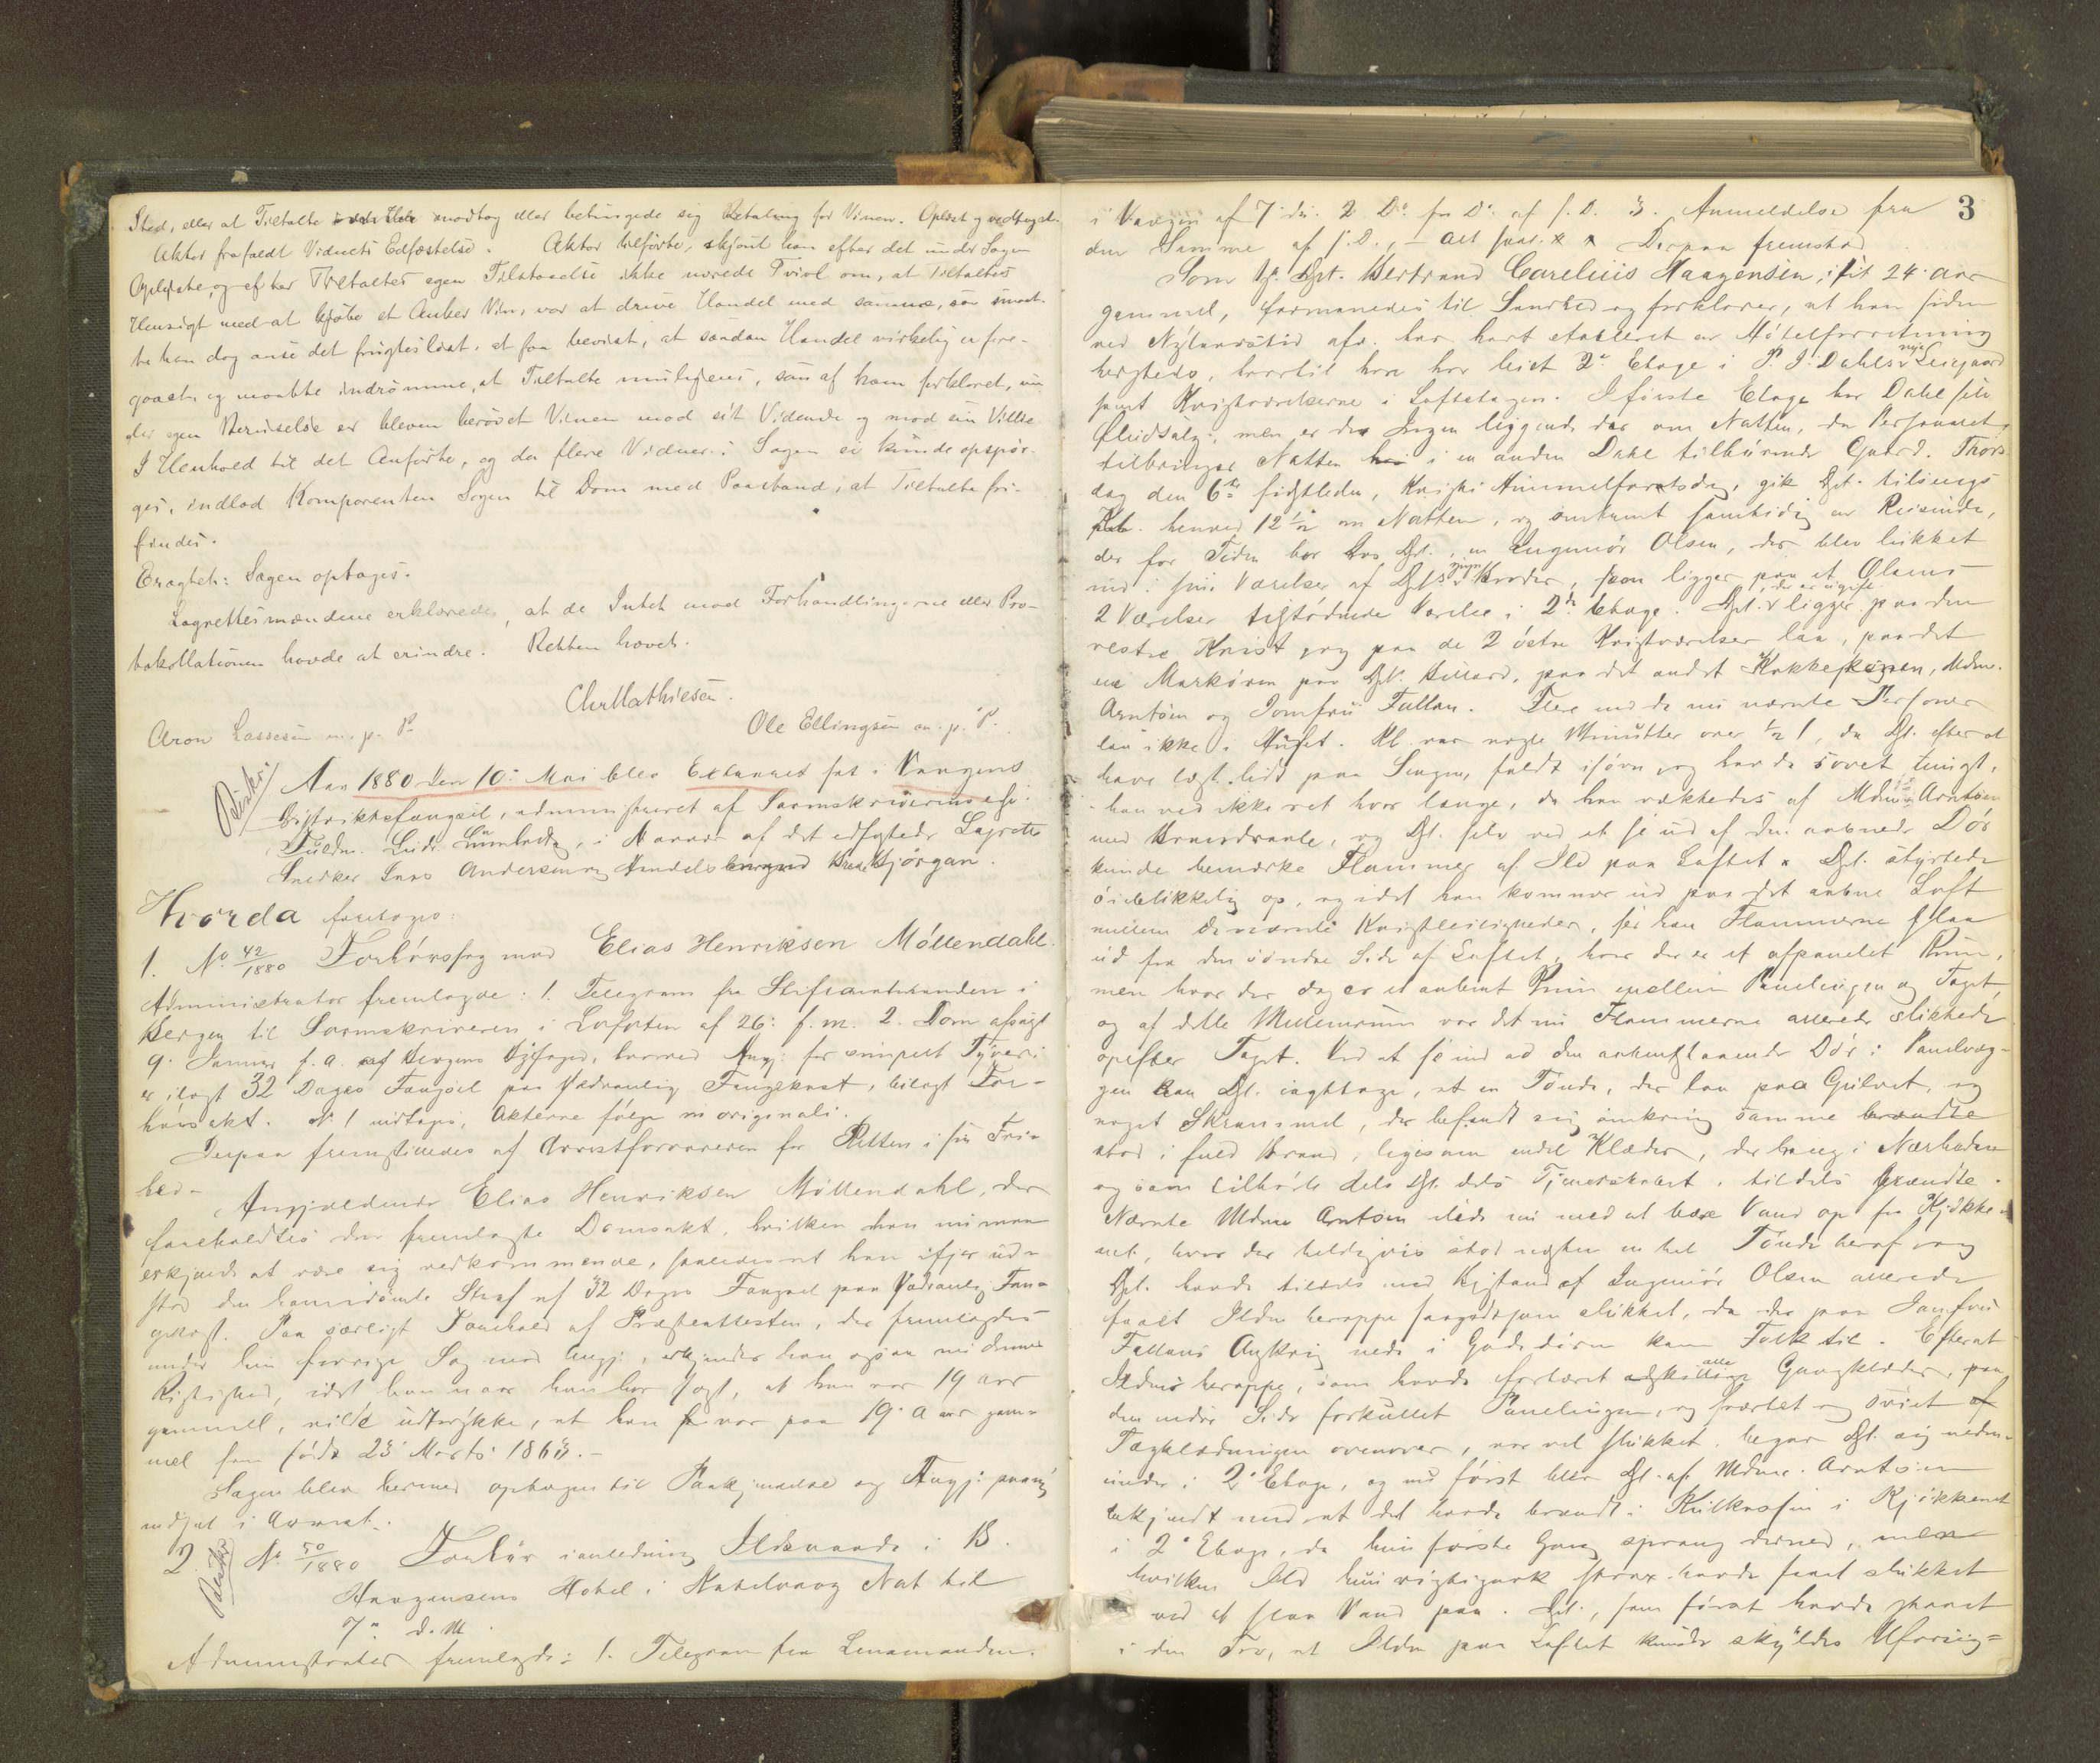 Sted, eller at Tiltalte modtog eller betingede sig Betaling for Vinen. Oplæst og vedtaget.
Aktor frafaldt Vidnets Edfæstelse. Aktor tilførte, skjønt han efter det under Sagen
Oplyste, og efter Tiltaltes egen Tilstaaelse ikke nærede Tvivl om, at Tiltaltes
Hensigt med at kjøbe et Anker Vin, var at drive Handel med samme, saa maat-
te han dog anse det frugtesløst, at faa bevist, at saadan Handel virkelig er fore-
gaaet, og maatte indrømme, at Tiltalte muligens, som af ham forklaret, un
der egen Beruselse er bleven berøvet Vinen mod sit Vidende og mod sin Villie.
I Henhold til det Anførte, og da flere Vidner i Sagen ei kunde opspør-
ges, indlod Komparenten Sagen til Dom med Paastand, at Tiltalte fri-
findes.
Eragtet: Sagen optages.
Lagrettesmændene erklærede, at de Intet mod Forhandlingerne eller Pro-
tokollationen havde at erindre. Retten hævet.
Chr Mathiesen.
Aron Lassesen m. p. P.
Ole Ellingsen m. p. P.
Aar 1880 den 10: Mai blev Extraret sat i Vaagens
Distriktsfængsel, administreret af Sorenskriverens
Fuldm. i Nærvær af det edfæstede Lagrette
Snedker Andersen og Handels Bjørgan.
Hvorda foretoges:
1. No 42/1880 Forhørssag mod Elias Henriksen Möllendahl.
Administrator fremlagde: 1. Telegram fra Stiftamtmanden i
Bergen til Sorenskriveren i Lofoten af 26: f. m. 2. Dom afsagt
9. Januar f. a. af Bergens Byfoged, hvorved Angj: for simpelt Tyveri
er ilagt 32 Dages Fængsel paa sædvanlig Fangekost, bilagt For-
hørsakt. No 1 indtages, Akterne følge in originali.
Derpaa fremstilledes af Arrestforvareren for Retten i sin Fri-
hed -
Angjældende Elias Henriksen Möllendahl, der
foreholdtes den fremlagte Domsakt, hvilken han nu maa
erkjende at være sig vedkommende, saaledes at han ifjor ud-
stod den ham idømte Straf af 32 Dages Fængsel paa sædvanlig Fan-
gekost. Paa særligt Forehold af Præsteattesten, der fremlagdes
under hin forrige Sag mod Angj:, erkjender han ogsaa nu dennes
Rigtighed, idet han naar han har sagt, at han var 19 Aar
gammel, vilde udtrykke, at han var paa 19. Aar gam-
mel som født 23 Marts 1861.-
Sagen blev hermed optagen til Paakjendelse og Angj: paany
indsat i Arrest.
2. No 50/1880 Forhør i anledning Ildsvaade i B.
Haagensens Hotel i Kabelvaag Nat til
7. d. M.
Administrator fremlagde: 1. Telegram fra Lensmanden
3
i Vaagen af 7. ds. 2. Do fra Do af s. D. 3. Anmeldelse fra
den Samme af s. D., - Derpaa fremstod
Som Bertrand Carelius Haagensen, i sit 24. Aar
gammel, formanedes til Sandhed og forklarer, at han siden
ved Nytaarstid har etableret en Hotelforretning
hersteds, hvortil han har leiet 2. Etage i P. J. Dahls nye
samt Kvistværelserne i Loftetagen. I første Etage har Dahl sit
men er der Ingen liggende der om Natten, da Personalet
tilbringer Natten i en anden Dahl tilhørende Gaard. Tors
dag den 6te sidstleden, Kristi Himmelfartsdag, gik Dpt. tilsengs
henved 12 1/2 om Natten, og omtrent samtidig en Reisende,
der for Tiden bor hos Dpt., en Ingeniør Olsen, der blev lukket
ind i sine Værelser af Dpts Broder, som ligger paa et Olsens
2 Værelser tilstødende Værelse i 2den Etage. Dpt., der er ugift ligger paa den
vestre Kvist og paa de 2 østre Kvistværelser laa, paa det
ene Markøren paa Dpt. Billard, paa det andet Kokkepigen, Mdm.
Arntsen og Jomfru Fallan. Flere end de nu nævnte Personer
laa ikke i Huset. Kl. var nogle Minutter over 1/2 1, da Dpt. efter at
have læst lidt paa Sengen, faldt isøvn, og havde sovet trygt,
han ved ikke ret hvor længe, da han vækkedes af Mdme Arntsen
med Brandraab, og Dpt. selv ved at se ud af den aabnede Dør
kunde bemærke Flammer af Ild paa Loftet. Dpt. styrtede
øieblikkelig op, og idet han kommer ud paa det aabne Loft
mellem de nævnte Kvistleiligheder, ser han Flammerne slaa
ud fra den søndre Side af Loftet, hvor der er et afpanelet Rum,
men hvor der dog er et aabent Rum mellem Panelingen og Taget,
og af dette Mellemrum var det nu Flammerne allerede slikkede
opefter Taget. Ved at se ind ad den aabenstaaende Dør i Panelvæg-
gen kan Dpt. iagttage, at en Tønde, der laa paa Gulvet, og
noget Skrammel, der befandt sig omkring samme
stod i fuld Brand, ligesom endel Klæder, der hang i Nærheden
og som tilhørte dels Dpt. dels Tjenerskabet, tildels brændte.
Nævnte Mdme Arntsen ilede nu med at bære Vand op fra Kjøkke
net, hvor der heldigvis stod næsten en hel Tønde heraf, og
Dpt. havde tildels med Bistand af Ingeniør Olsen allerede
faaet Ilden heroppe saagodtsom slukket, da der paa Jomfru
Fallans Anskrig nede i Gadedøren kom Folk til. Efterat
Ildens heroppe, som havde fortæret alle Gangklæder, paa
den indre Side forkullet Panelingen, og sværtet og sviet
Tagklædningen ovenover, var vel slukket, begav Dpt. sig neden-
under i 2. Etage, og nu først blev Dpt. af Mdme. Arntsen
bekjendt med at det havde brændt i Kulkassen i Kjøkkenet
i 2. Etage, da hun første Gang sprang derned,
hvilken Ild hun rigtignok strax havde faaet slukket
ved at slaa Vand paa. Dpt., som først havde staaet
i den Tro, at Ilden paa Loftet kunde skyldes Uforsig-